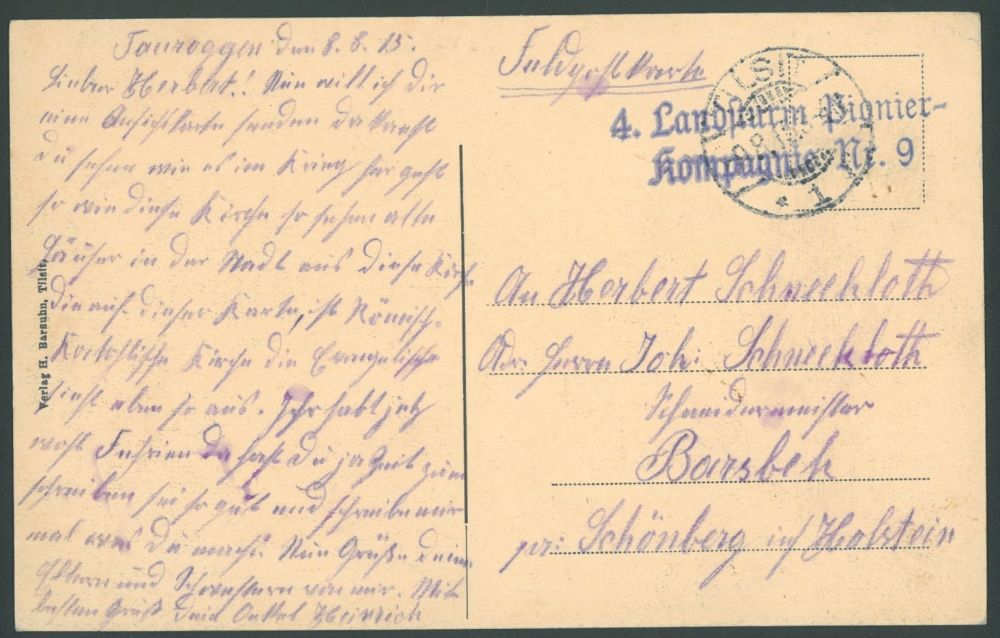 Tauroggen den 8.8.15.
Lieber Herbert! Nun will ich dir
eine Ansichtkarte senden da kanst
du sehen wie es im Krieg her geht
so wie diese Kirche so sehen alle
Häuser in der Stadt aus diese Kirche
die auf dieser Karte, ist Römisch-
Kartohlische Kirche die Evangelische
sieht eben so aus. Ihr habt jetz
wohl Fehrien da hast Du ja Zeit zum
schreiben sei so gut und schreibe mir
mal was Du machst. Nun Grüße deine
Eltern und Schwestern von mir. Mit
besten Gruß dein Onkel Heinrich
Verlag H. Barsuhn, Tilsit.
Feldpostkarte
4. Landsturm Pionier-
Kompagnie Nr. 9
TILSIT
* 1
An Herbert Schneekloth
Adr. Herrn Joh: Schneekloth
Schneidermeister
Barsbek
pr: Schönberg in/Holstein